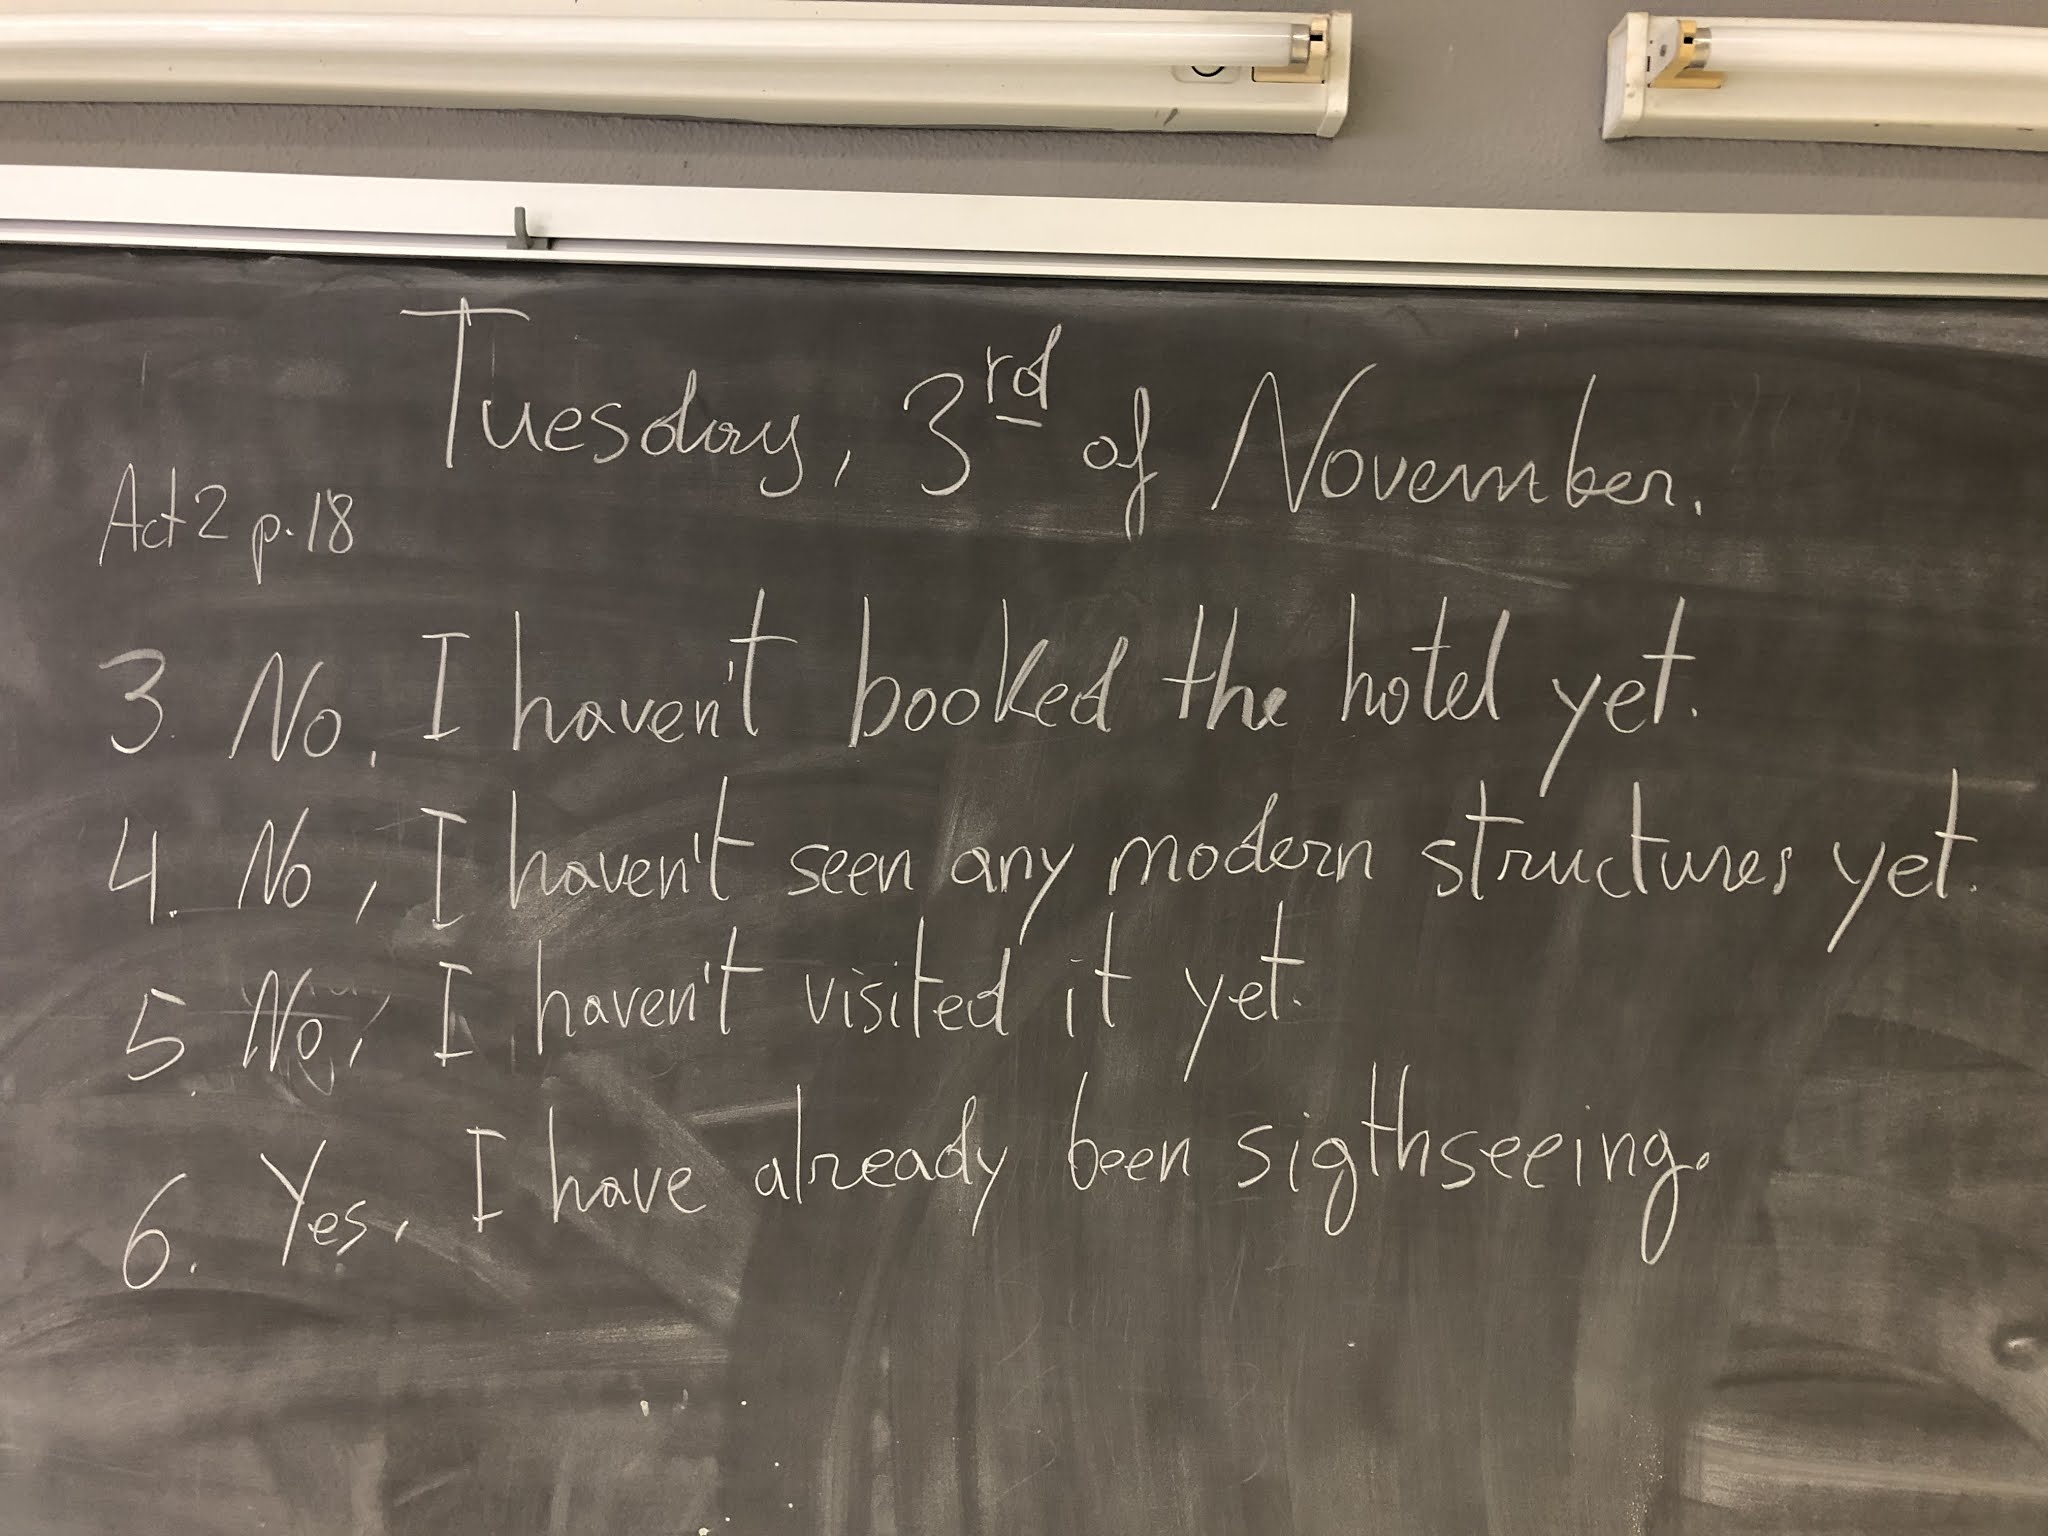 Tuesday, 3rd of November.
Act 2 p. 18
3. No, I haven't booked the hotel yet.
4. No, I haven't seen any modern structures yet.
5. No, I haven't visited it yet.
6. Yes, I have already been sigthseeing.